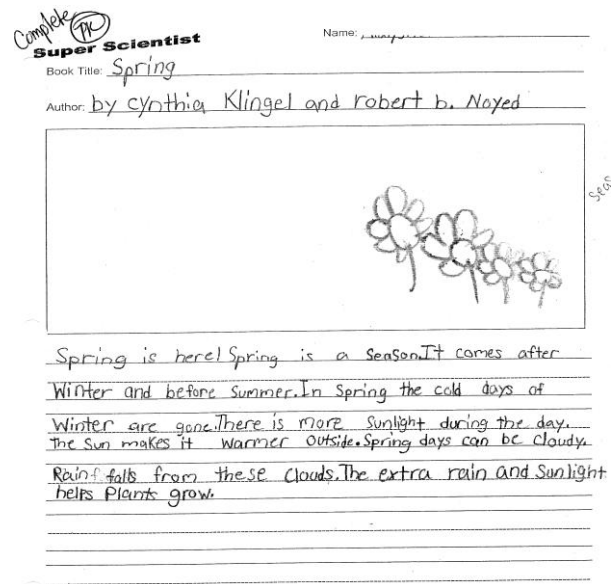 Complete
PK
Super Scientist
Name:
Book Title: Spring
Author: by cynthia Klingel and robert b. Noyed
Seas
Spring is here! Spring is a Season.It comes after
Winter and before Summer.In Spring the cold days of
Winter are gone.There is more Sunlight during the day.
the Sun makes it warmer outside.Spring days can be cloudy.
Rainf falls from these clouds.The extra rain and Sunlight
helps Plants grow.